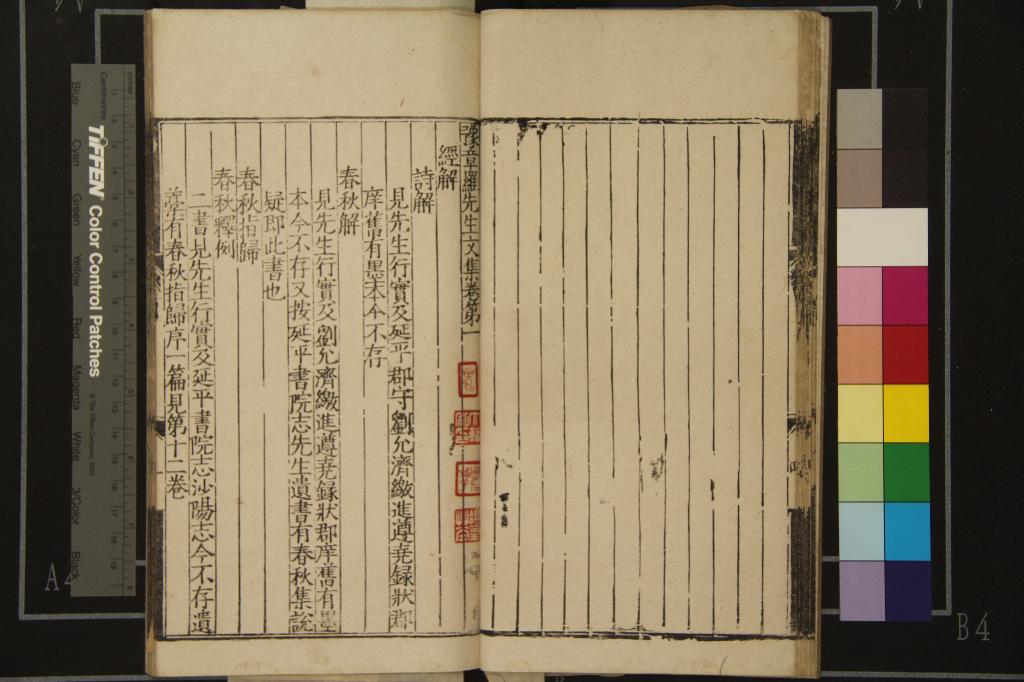 豫章羅先生文集卷第一
經解
詩解
見先生行實及延平郡守劉允濟繳進遵堯録狀郡
庠舊有墨本今不存
春秋解
見先生行實及劉允濟繳進遵堯録狀郡庠舊有墨
本今不存又按延平書院志先生遺書有春秋集說
疑即此書也
春秋指歸
春秋釋例
二書見先生行實及延平書院志沙陽志今不存遺
藁有春秋指歸序一篇見第十二卷
Inches
Centimetres
TIFFEN Color Control Patches
© The Tiffen Company, 2007
Blue
Cyan
Green
Yellow
Red
Magenta
White
3/Color
Black
A4
B4